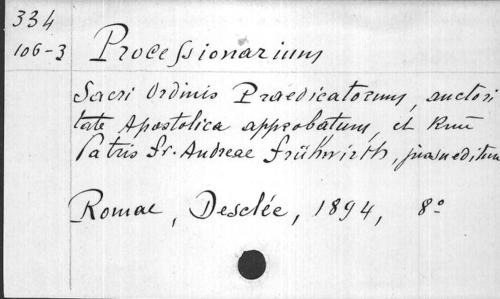 334
106-3
Processionarium
Sacri Ordinis Praedicatorum, auctori
tate Apostolica approbatum, et Rmi
Patris Fr. Andreae Frühwirth, jussu editum
Romae, Desclée, 1894, 8º